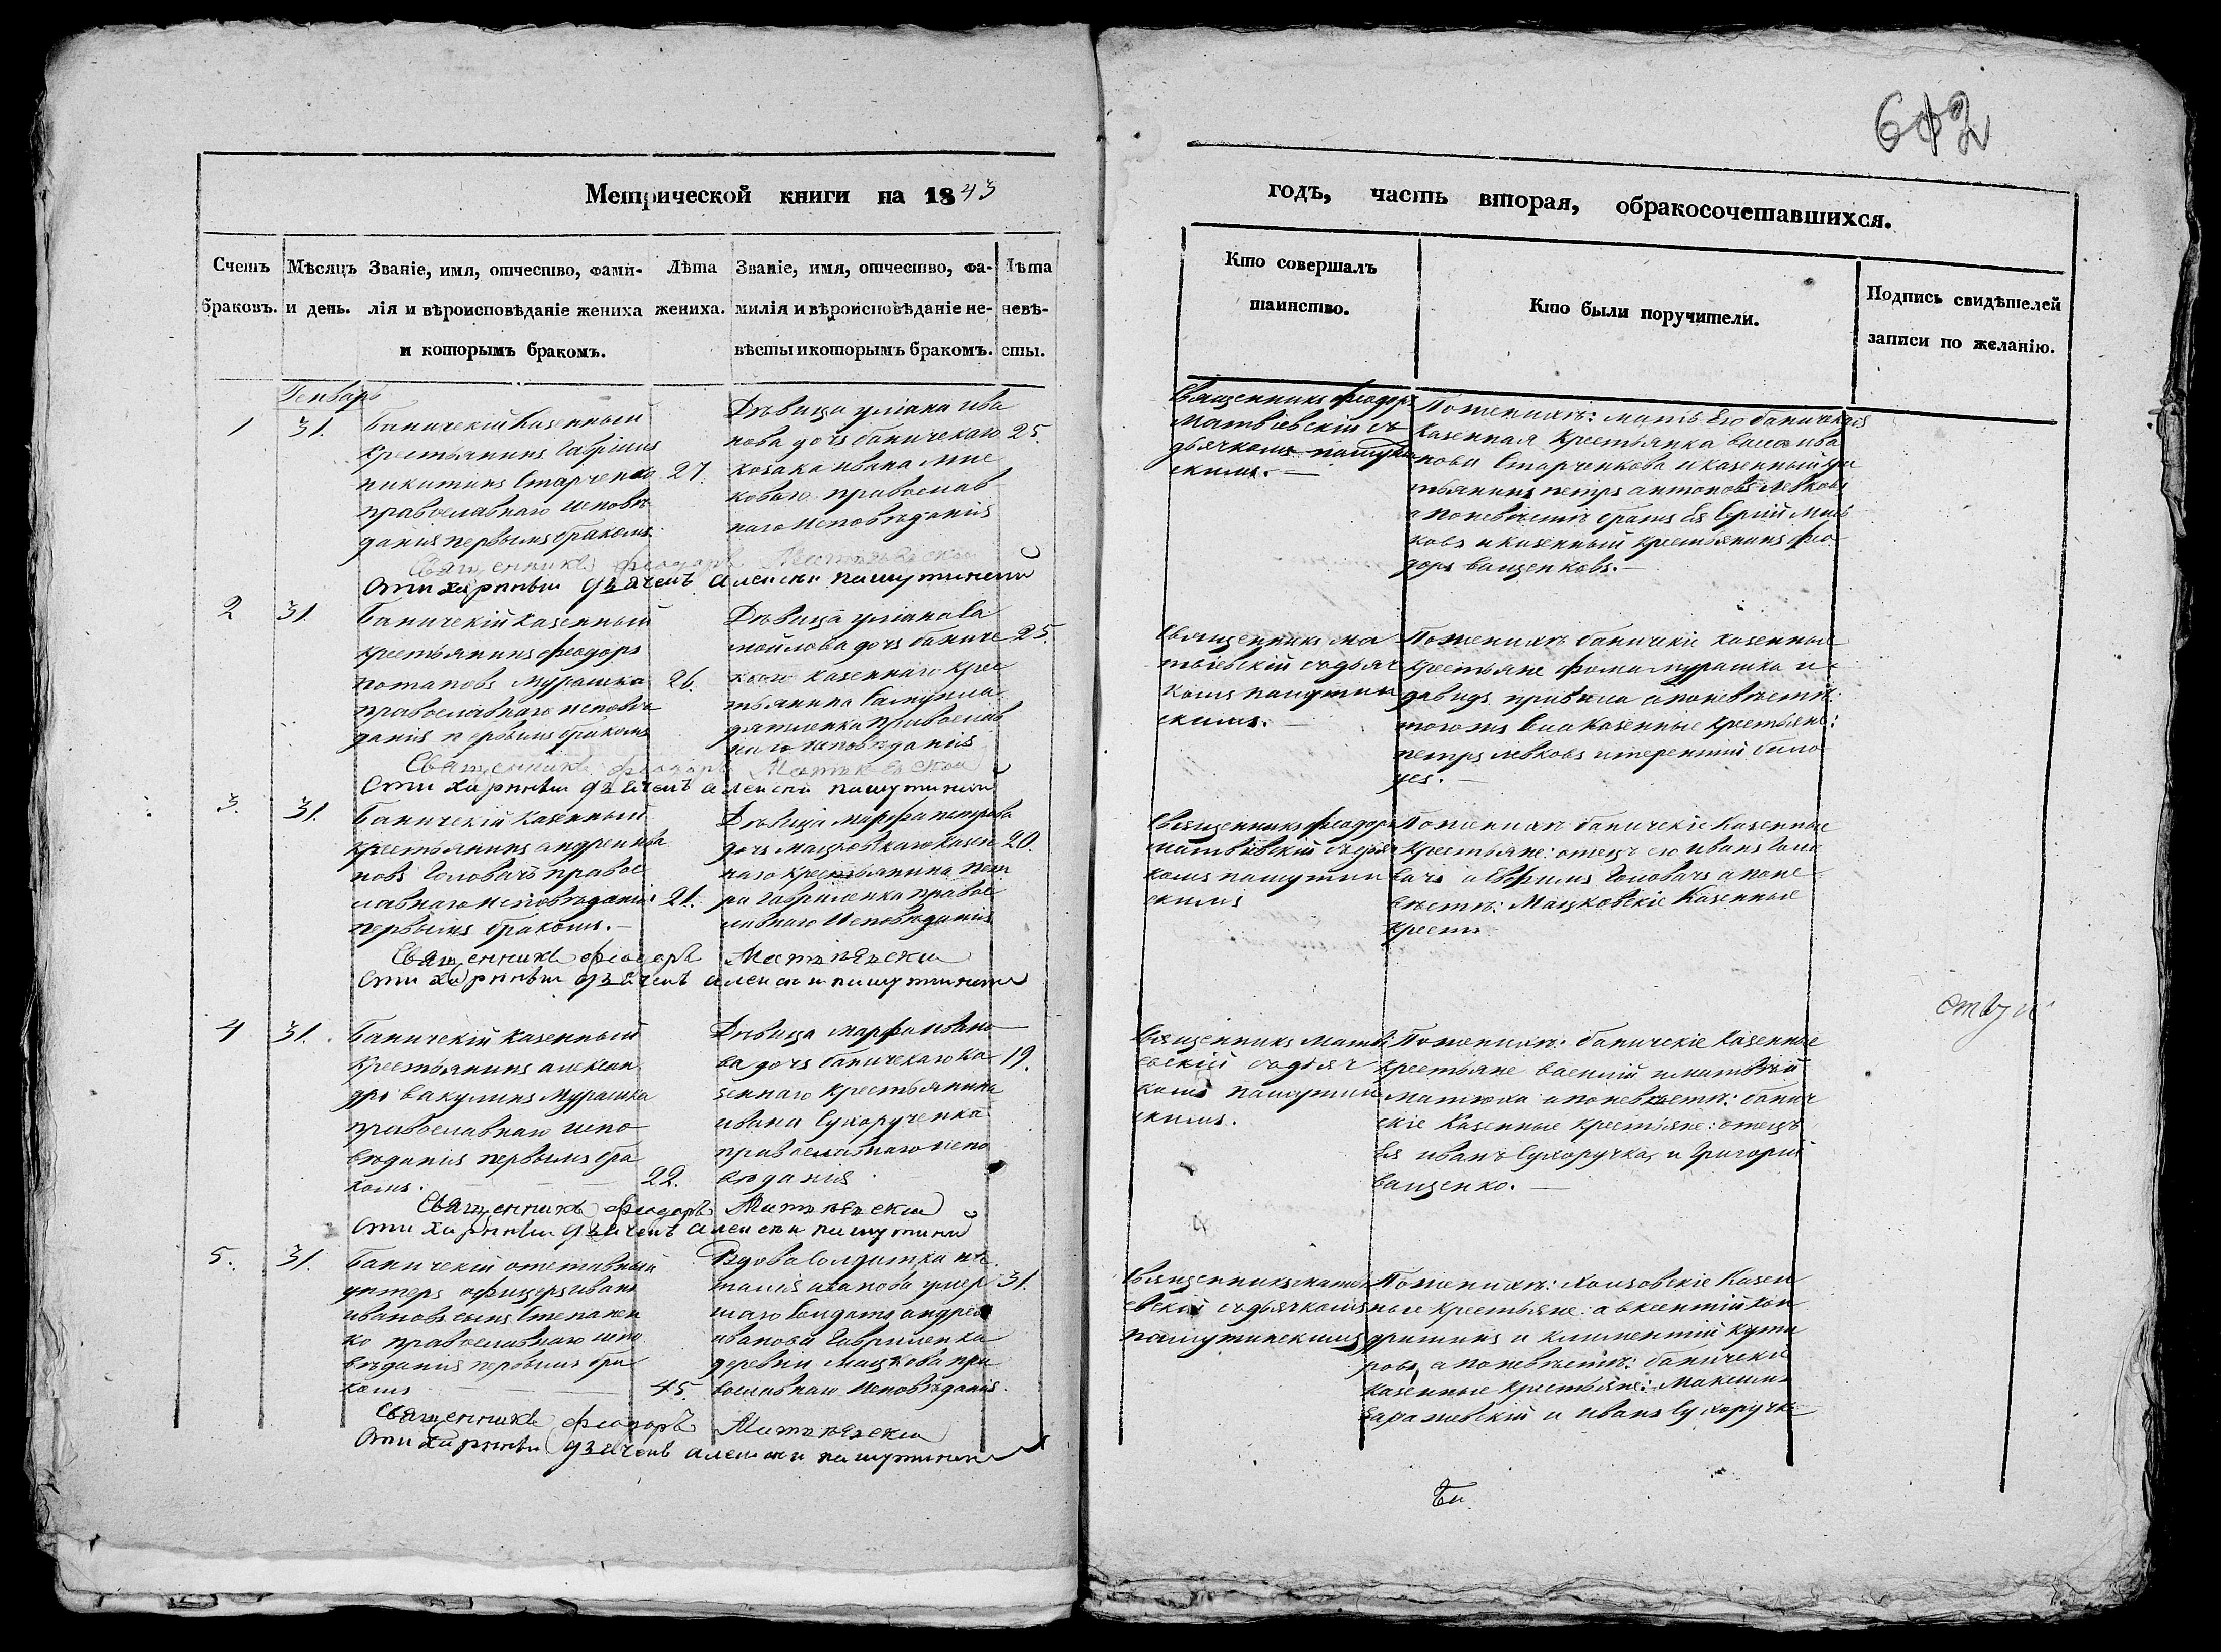 602
Метрической книги на 1843
годъ, часть вторая, обракосочетавшихся.
Счетъ браковъ.
Мѣсяцъ и день.
Званіе, имя, отчество, фами-
лія и вѣроисповѣданіе жениха
и которымъ бракомъ.
Лѣта жениха.
Званіе, имя, отчество, фа-
милія и вѣроисповѣданіе не-
вѣсты и которымъ бракомъ.
Лѣта невѣ-
сты.
Кто совершалъ
таинство.
Кто были поручители.
Подпись свидѣтелей
записи по желанію.
Генварь
1
31.
Баничскій казенный
крестьянинъ Гавріилъ
никитинъ Старченко
православнаго исповѣ
данія первымъ бракомъ.
27.
Дѣвица уліана ива
нова дочь баничскаго
козака ивана
православ
наго исповѣданія
25.
Священникъ феодоръ
Матвіевскій съ
дьячкомъ пашутин
скимъ.
По женихѣ: мать его баничская
казенная крестьянка ива
нова Старченкова и казенный кре
стьянинъ петръ антоновъ левковъ
а по невѣстѣ братъ ея
и казенный крестьянинъ фео
доръ ващенковъ.
Священникъ феодоръ Матвѣевскій
Стихарный дьячекъ алексѣй пашутинскій
2
31.
Баничскій казенный
крестьянинъ феодоръ
потаповъ мурашка
православнаго исповѣ
данія первымъ бракомъ
26.
Дѣвица уліана са
мойлова дочь баниче
каго казеннаго крес
тьянина Самуила
православ
наго исповѣданія
25.
Священникъ ма
твіевскій съ дьяч
комъ пашутин
скимъ.
По женихѣ баничскіе казенные
крестьяне фома мурашка и
давидъ а по невѣстѣ:
того жъ села казенные крестьяне:
петръ левковъ и терентій било
усъ.
Священникъ феодоръ Матвѣевскій
Стихарный дьячекъ алексѣй пашутинскій
3.
31.
Баничскій казенный
крестьянинъ андрей ива
новъ Головачъ право
славнаго исповѣданія
первымъ бракомъ.
21.
Дѣвица марфа петрова
дочь мацковскаго казен
наго крестьянина пет
ра Гавриленка право
славнаго исповѣданія
20.
Священникъ феодоръ
матвѣевскій съ дьяч
комъ пашутин
скимъ
По женихѣ баничскіе казенные
крестьяне: отецъ его иванъ Голо
вачъ и Ефимъ Головачъ а по не
вѣстѣ: Мацковскіе казенные
крест
Священникъ феодоръ Матвѣевскій
Стихарный дьячекъ алексѣй пашутинскій
4
31.
Баничскій казенный
крестьянинъ алексан
дръ вакулинъ мурашка
православнаго испо
вѣданія первымъ бра
комъ.
22.
Дѣвица марфа ивано
ва дочь баничскаго ка
зеннаго крестьянина
ивана Сухорученка
православнаго испо
вѣданія
19.
Священникъ матв
евскій съ дьяч
комъ пашутин
скимъ.
По женихѣ: баничскіе казенные
крестьяне василій и матвѣй
а по невѣстѣ: банич
скіе казенные крестьяне: отецъ
ея иванъ Сухоручка, и Григорій
ващенко.
Священникъ феодоръ Матвѣевскій
Стихарный дьячекъ алексѣй пашутинскій
5.
31.
Баничскій отставный
унтеръ офицеръ иванъ
ивановъ сынъ Степанен
ко православнаго испо
вѣданія первымъ бра
комъ
45.
Вдова Солдатка на
талія иванова умер
шаго Солдата андрея
иванова Гавриленка
деревни мацкова пра
вославнаго исповѣданія.
31.
Священникъ матв
евскій съ дьячкомъ
пашутинскимъ
По женихѣ: казен
ные крестьяне: авксентій кон
дратинъ и климентій
а по невѣстѣ: баничскіе
казенные крестьяне: максимъ
и иванъ Сухоручка
Священникъ феодоръ Матвѣевскій
Стихарный дьячекъ алексѣй пашутинскій